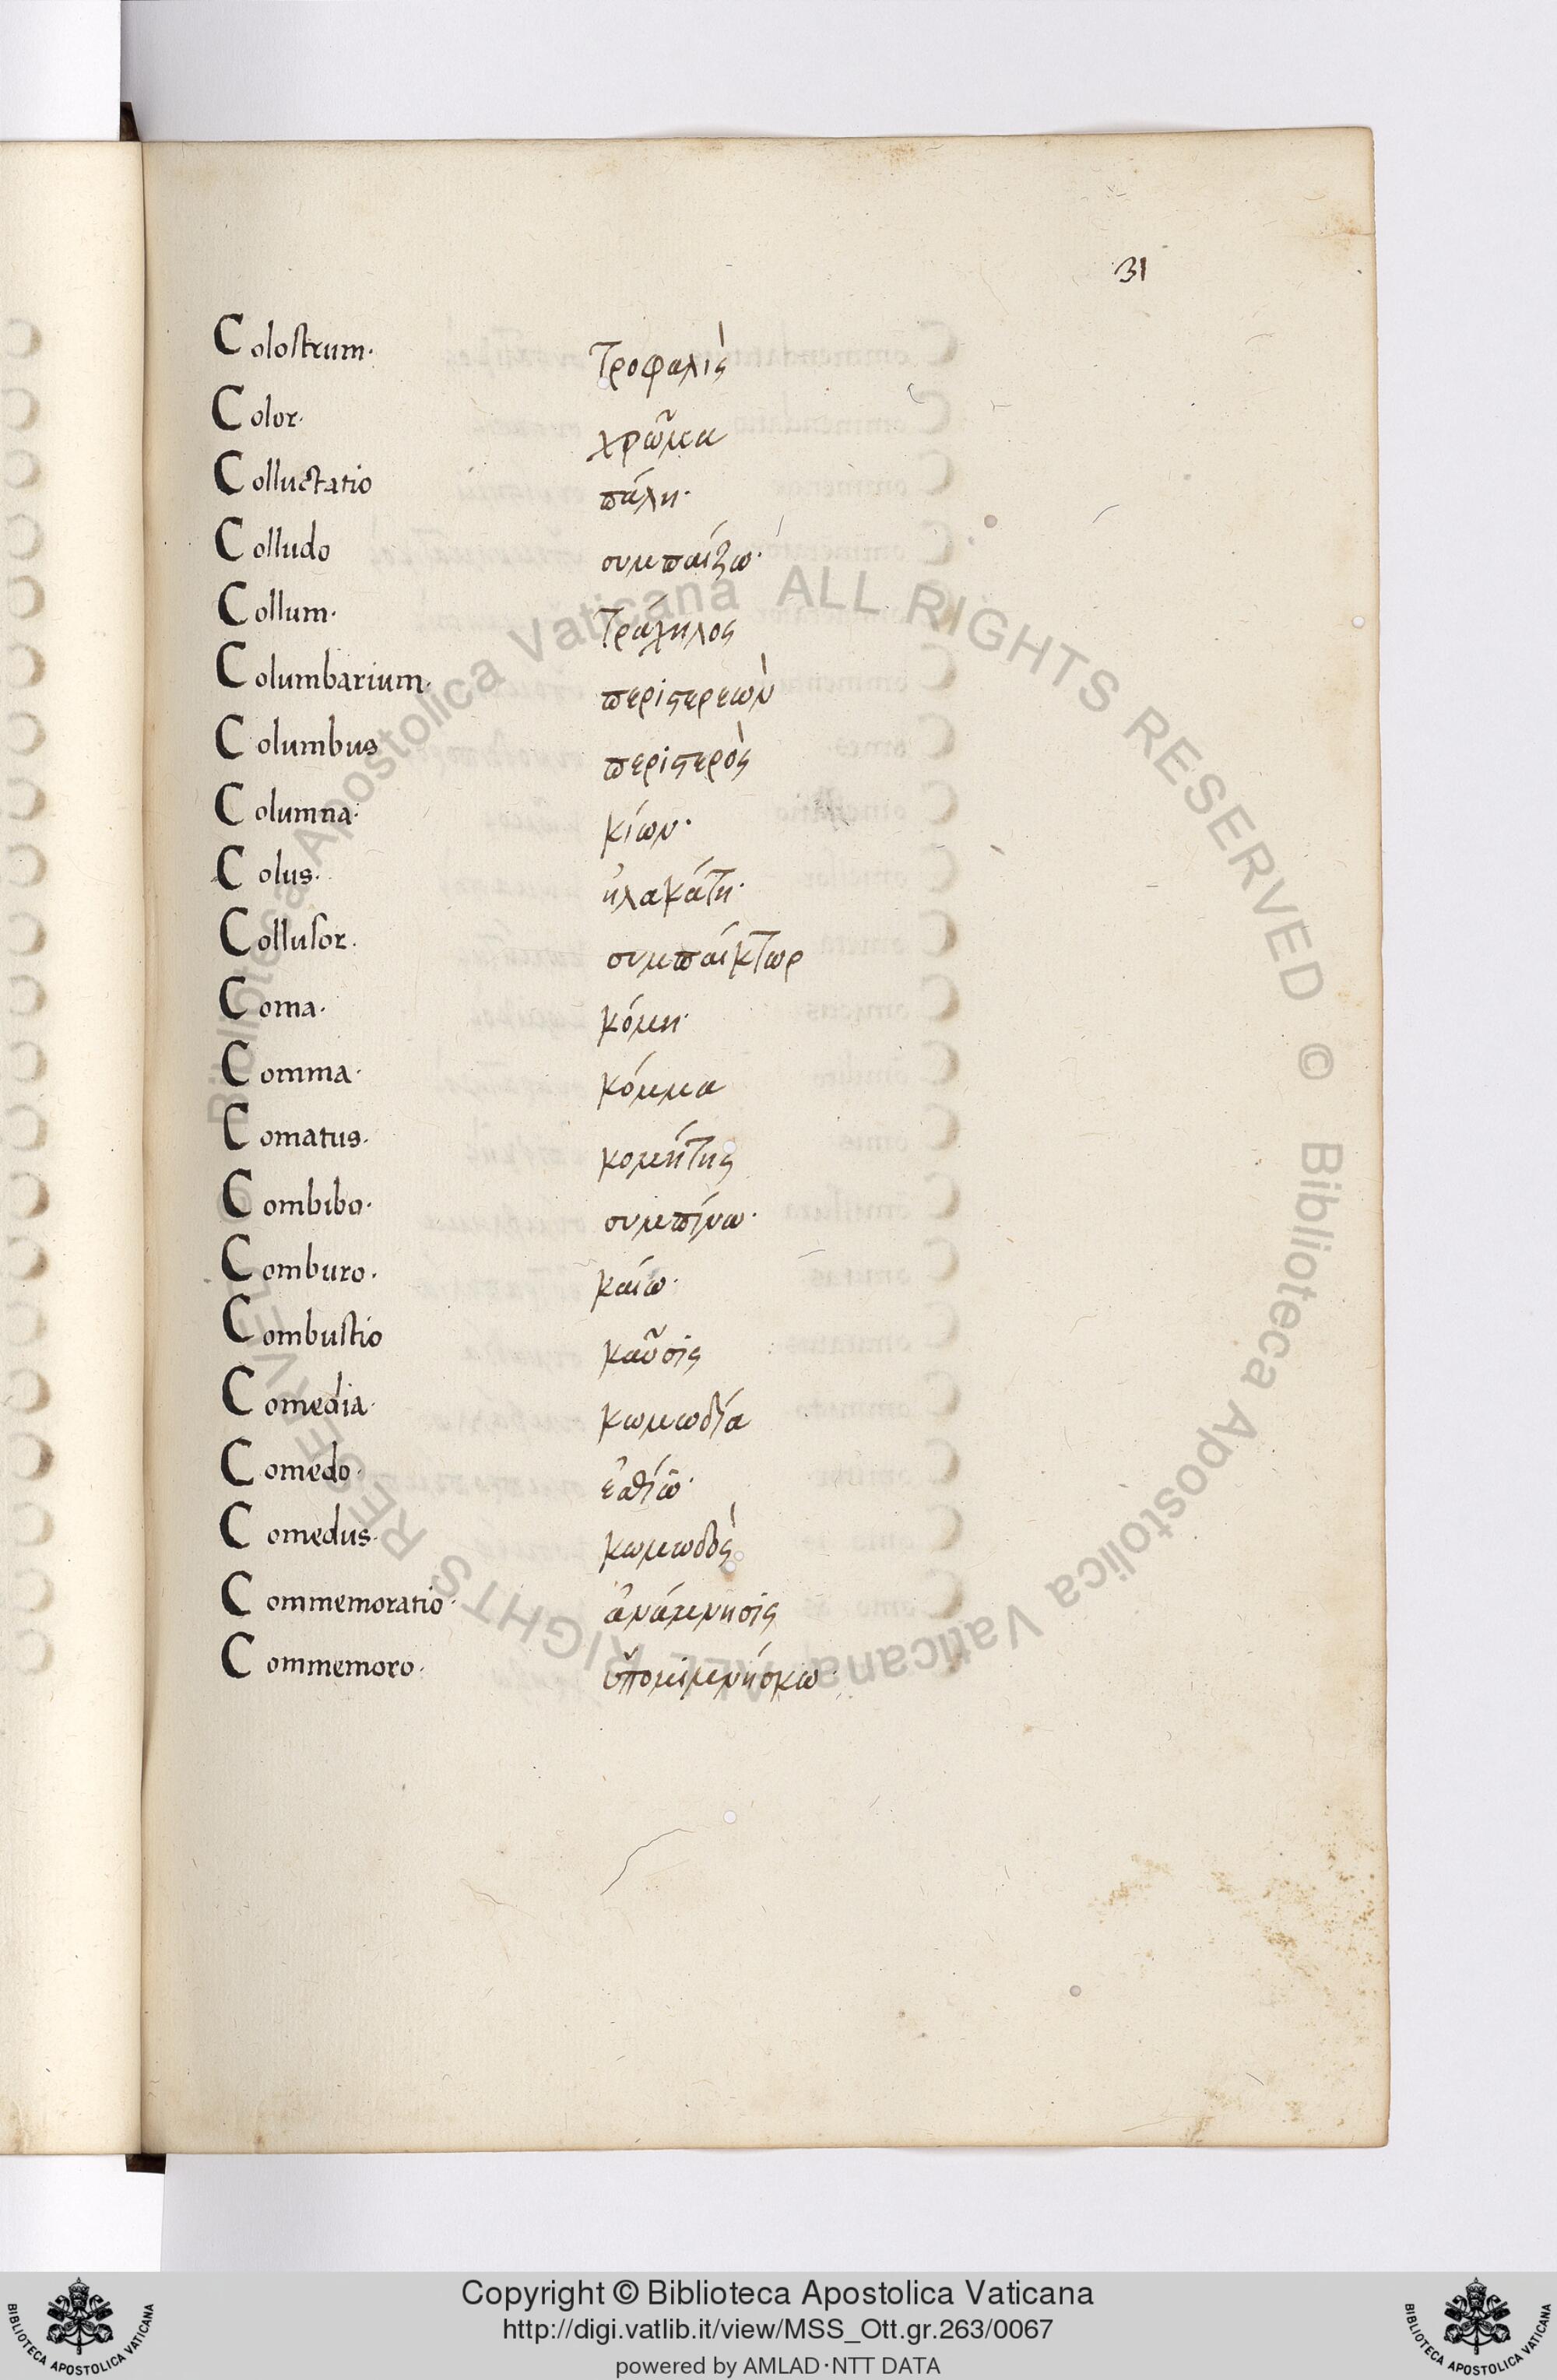 31
Colostrum· τροφαλὶς
Color· χρῶμα
Colluctatio πάλη·
Colludo συμπαίζω·
Collum· τράχηλος
Columbarium· περιστερεὼν
Columbus περιστερὸς
Columna· κίων·
Colus· ἠλακάτη·
Collusor· συμπαίκτωρ
Coma· κόμη·
Comma· κόμμα
Comatus· κομήτης
Combibo· συμπίνω·
Comburo· καίω·
Combustio καῦσις
Comedia· κωμωδία
Comedo· ἐσθίω·
Comedus· κωμωδὸς
Commemoratio· ἀνάμνησις
Commemoro· ὑπομιμνήσκω·
Biblioteca Apostolica Vaticana ALL RIGHTS RESERVED ©
Biblioteca Apostolica Vaticana ALL RIGHTS RESERVED ©
Copyright © Biblioteca Apostolica Vaticana
http://digi.vatlib.it/view/MSS_Ott.gr.263/0067
powered by AMLAD·NTT DATA
BIBLIOTECA APOSTOLICA VATICANA
BIBLIOTECA APOSTOLICA VATICANA